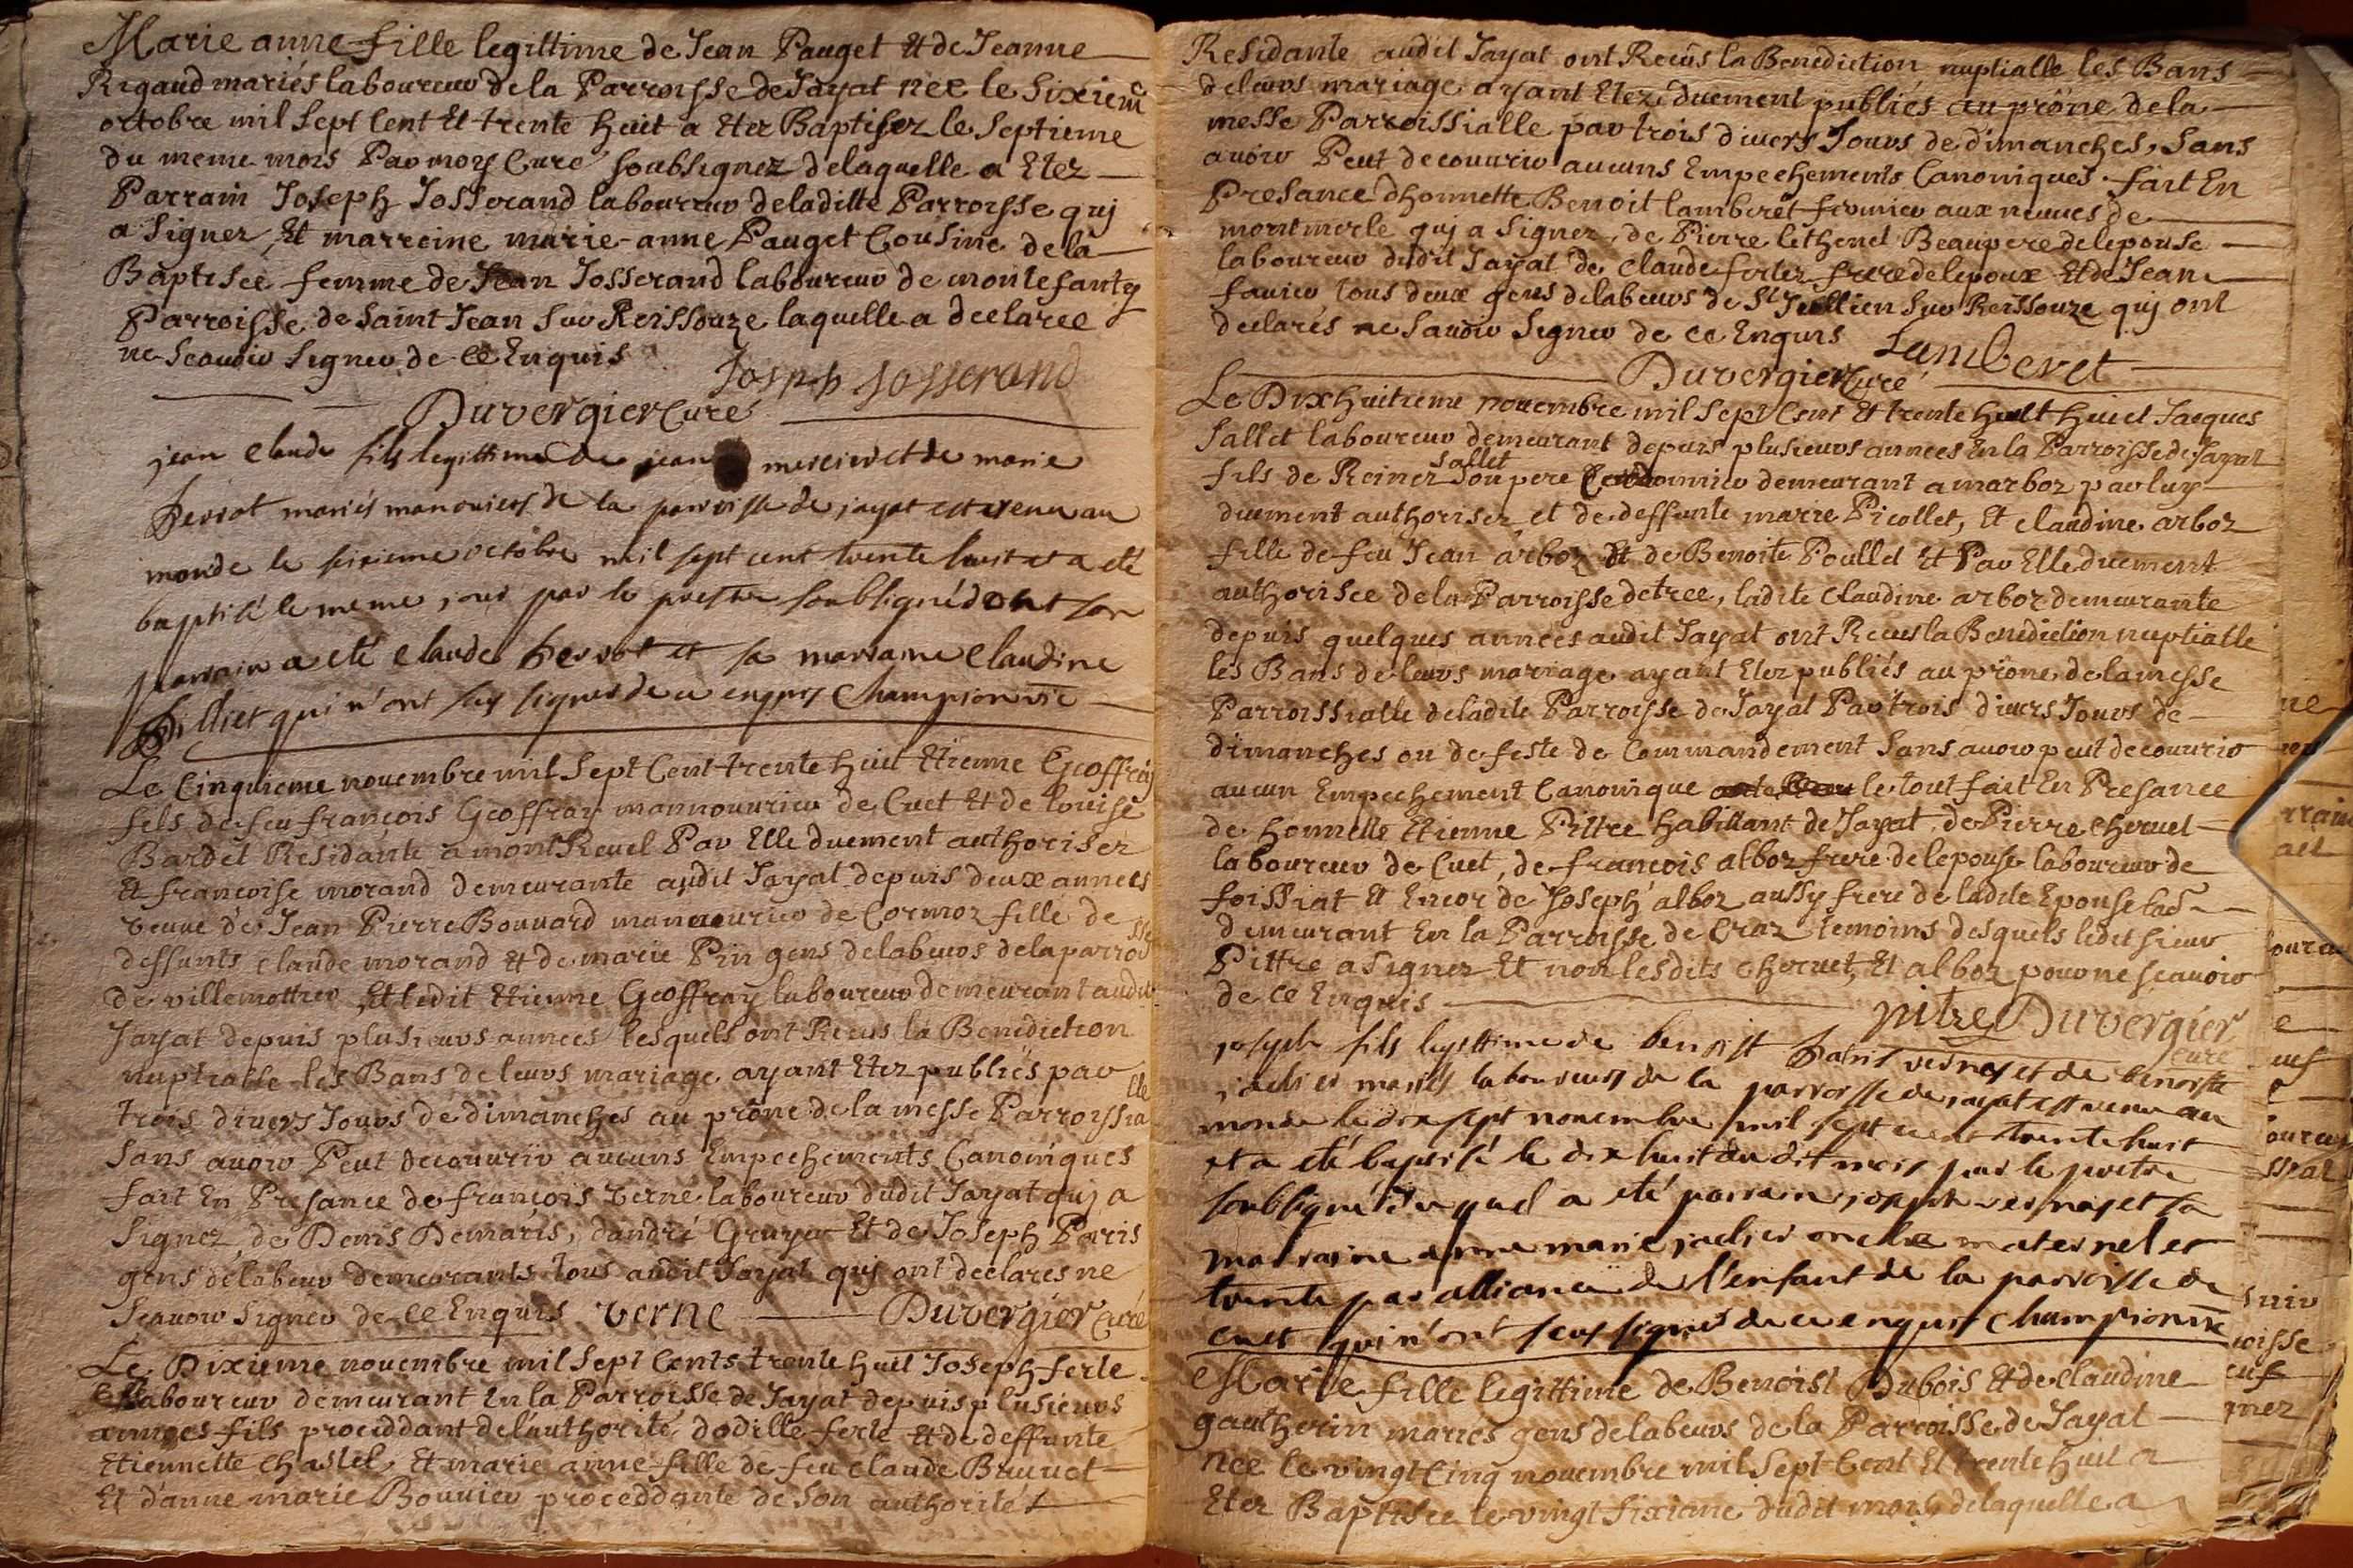 Marie anne fille legittime de Jean Pauget Et de Jeanne
Rigaud mariés laboureur de la Parroisse de Jayat née le Sixiem
octobre mil Sept Cent Et trente huit a Eter Baptisez le Septieme
du meme mois Par moy Curé Soubsignez delaquelle a Etez
Parrain Joseph Josserand laboureur deladitte Parroisse quj
a Signer Et marreine marie-anne Pauget Cousine dela
Baptisée femme de Jean Josserand laboureur de montefanty
Parroisse de Saint Jean Sur Reissouze laquelle a declaree
ne Scauoir Signer de ce Enquis
Joseph Josserand
Duvergier Curé
jean claude fils legittime de jean mercier et de marie
perrot mariés manouiers de la parroisse de jayat est venu au
monde le sixieme octobre mil sept cent trente huit et a eté
baptisé le meme jour par le prestre soubsigné dont son
parrain a eté claude perrot et sa marraine claudine
qui n'ont seu signer de ce enquis Champion vic
Le Cinquieme nouembre mil Sept Cent trente huit Etienne Geoffray
fils de feu françois Geoffray mannouurier de Cuet Et de louise
Bardet Residante a montReuel Par Elle duement authoriser
Et françoise morand demeurante audit Jayat depuis deux annees
veuue de Jean Pierre Bouuard manouurier de Cormoz fille de
deffunts claude morand Et de marie Pin gens delabeurs dela parroisse
de villemottier, Et ledit Etienne Geoffray laboureur demeurant audit
Jayat depuis plusieurs annees lesquels ont Recus la Benediction
nuptialle les Bans deleurs mariage ayant Etez publiés par
trois divers Jours de dimanches au prône de la messe Parroissialle
Sans auoir Peut decouurir aucuns Empechements Canoniques
fait En Presance de françois verne laboureur dudit Jayat quj a
Signez, de Denis Demaris, d'andré Gruyer Et de Joseph Paris
gens delabeur demeurants tous audit Jayat quj ont declares ne
Scauoir Signer de ce Enquis verne Duvergier Curé
Le Dixieme nouembre mil Sept Cents trente huit Joseph ferle
laboureur demeurant En la Parroisse de Jayat depuis plusieurs
annees fils proceddant delauthorité dodille ferle Et de deffunte
Etiennette chastel, Et marie anne fille de feu claude Bruuet
Et d'anne marie Bouuier proceddante de Son authorité
Residante audit Jayat ont Recus la Benediction nuptialle les Bans
deleurs mariage ayant Etez duement publiés au prône dela
messe Parroissialle par trois divers Jours de dimanches, Sans
auoir Peut decouurir aucuns Empechements Canoniques fait En
Presance d'honnette Benoit lamberet fermier aux de
montmerle quj a Signez, de Pierre lethenet Beaupere delepouse
laboureur dudit Jayat de claude ferlez frere delepoux Et de Jean
fauier tous deux gens delabeurs de St Jullien Sur Reissouze quj ont
declarés ne Sauoir Signer de ce Enquis Lamberet
Duvergier Curé
Le Dixhuitieme nouembre mil Sept Cent Et trente huit Jacques
Sallet laboureur demeurant depuis plusieurs annees En la Parroisse de Jayat
fils de Reinez Sallet Son pere demeurant a marboz par luy
duement authorisez et de deffunte marie Picollet, Et claudine arboz
fille de feu Jean arboz Et de Benoite Poullet Et Par Elle duement
authorisee dela Parroisse detree, ladite claudine arboz demeurante
depuis quelques années audit Jayat ont Recus la Benediction nuptialle
les Bans de leurs mariage ayant Etez publiés au prône de lamesse
Parroissialle deladite Parroisse de Jayat Par trois divers Jours de
dimanches ou de feste de Commandement Sans auoir peut decouurir
aucun Empechement Canonique le tout fait En Presance
de honnette Etienne Pittre habittant de Jayat, de Pierre cheruet
laboureur de Cuet, de françois alboz frere de lepouse laboureur de
foissiat Et Encor de Joseph alboz aussy frere de ladite Epouse lab
demeurant En la Parroisse de Craz temoins desquels ledit Sieur
Pittre a Signez Et non lesdits cheruet, Et alboz pour ne Scauoir
de ce Enquis
pitre Duvergier
curé
joseph fils legittime de benoist vernay et de benoiste
jaclier mariés laboureurs de la parroisse de jayat est venu au
monde le dixsept nouembre mil sept cent trente huit
et a eté baptisé le dix huit du dit mois par le pretre
soubsigné du quel a eté parrain joseph vernay et sa
marraine anne marie jaclier oncle maternel et
tante par alliance de l'enfant de la parroisse de
cuet qui n'ont seus signé de ce enquis Champion vic
Marie fille legittime de Benoist Dubois Et de claudine
gautherin mariés gens delabeurs de la Parroisse de Jayat
née le vingt Cinq nouembre mil Sept Cent Et trente huit a
Eter Baptisée le vingt Sixieme dudit mois, delaquelle a